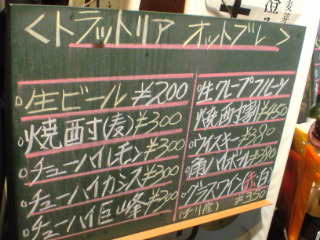 <トラットリア オットブレ>
生ビール ¥200
焼酎(麦)¥300
チューハイレモン¥300
チューハイカシス¥300
チューハイ巨峰¥300
生グレープフルーツ
焼酎割¥450
ウイスキー¥390
角ハイボール¥390
グラスワイン(赤・白)
(チリ産) ¥350